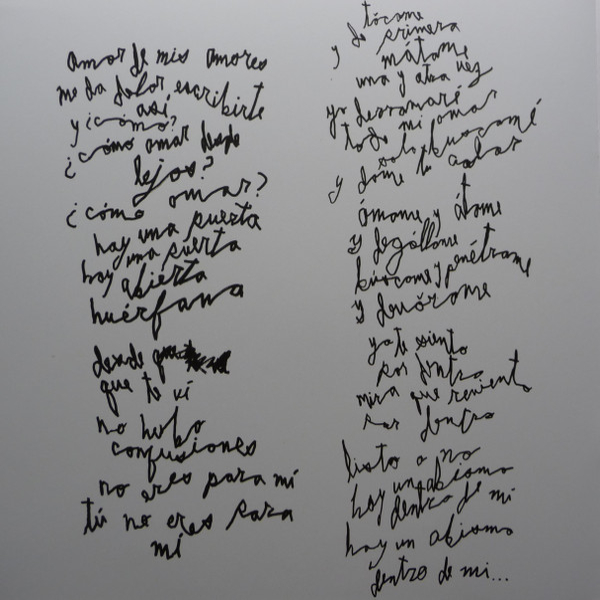 amor de mis amores
me da dolor escribirte
así
y ¿cómo?
¿cómo amar desde
lejos?
¿cómo amar?
hay una puerta
hay una puerta
abierta
huérfana
desde
que te vi
no hubo
confusiones
no eres para mí
tú no eres para
mí
tócame
y de primera
mátame
una y otra vez
yo derramaré
todo mi amar
solo búscame
y dame tu
ámame y átame
y dególlame
búscame y penétrame
y devórame
ya te siento
por dentro
mira que reviento
por dentro
listo o no
hay un abismo
dentro de mí
hay un abismo
dentro de mi...